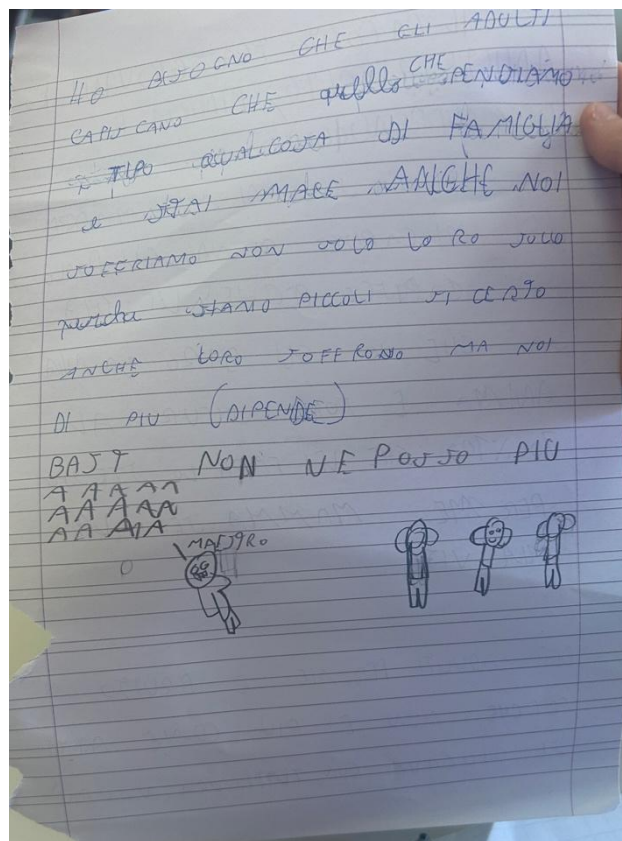 HO BISOGNO CHE GLI ADULTI
CAPISCANO CHE quello CHE PENDIAMO
è TIPO QUALCOSA DI FAMIGLIA
e STAI MALE ANCHE NOI
SOFFRIAMO NON SOLO LORO SOLO
perche SIAMO PICCOLI SI CERTO
ANCHE LORO SOFFRONO MA NOI
DI PIU (DIPENDE)
BAST NON NE POSSO PIU
A A A A A
A A A A A
A A A A A
MAESTRO